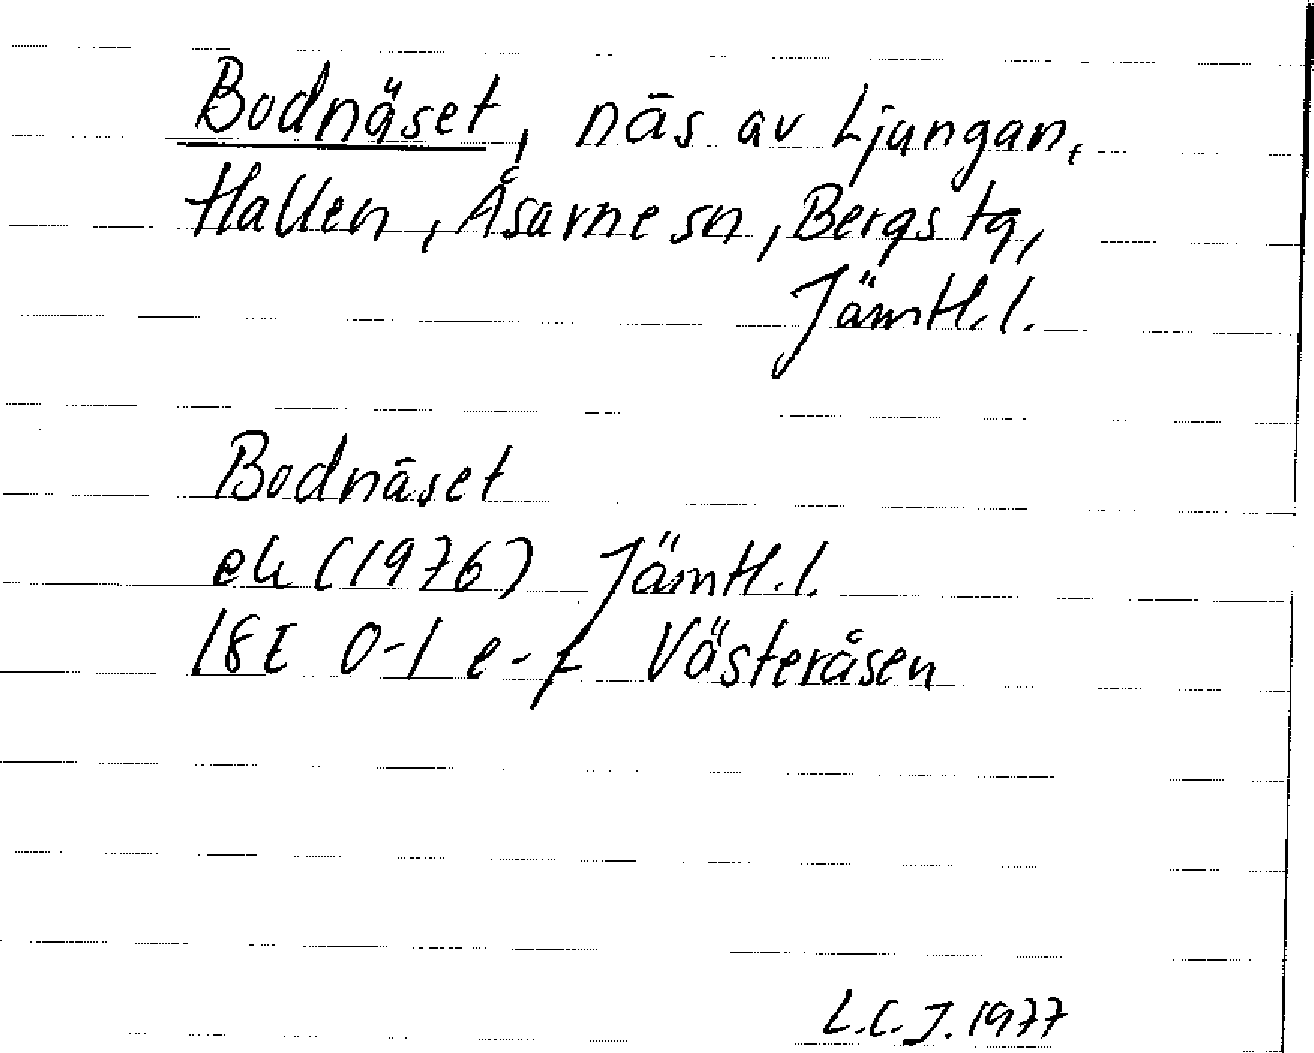 Bodnäset, näs av Ljungan,
Hallen, Åsarne sn, Bergs tg,
Jämtl. l.
Bodnäset
ek (1976) Jämtl. l.
18E 0-1 e-f Västeråsen
L.C.J. 1977